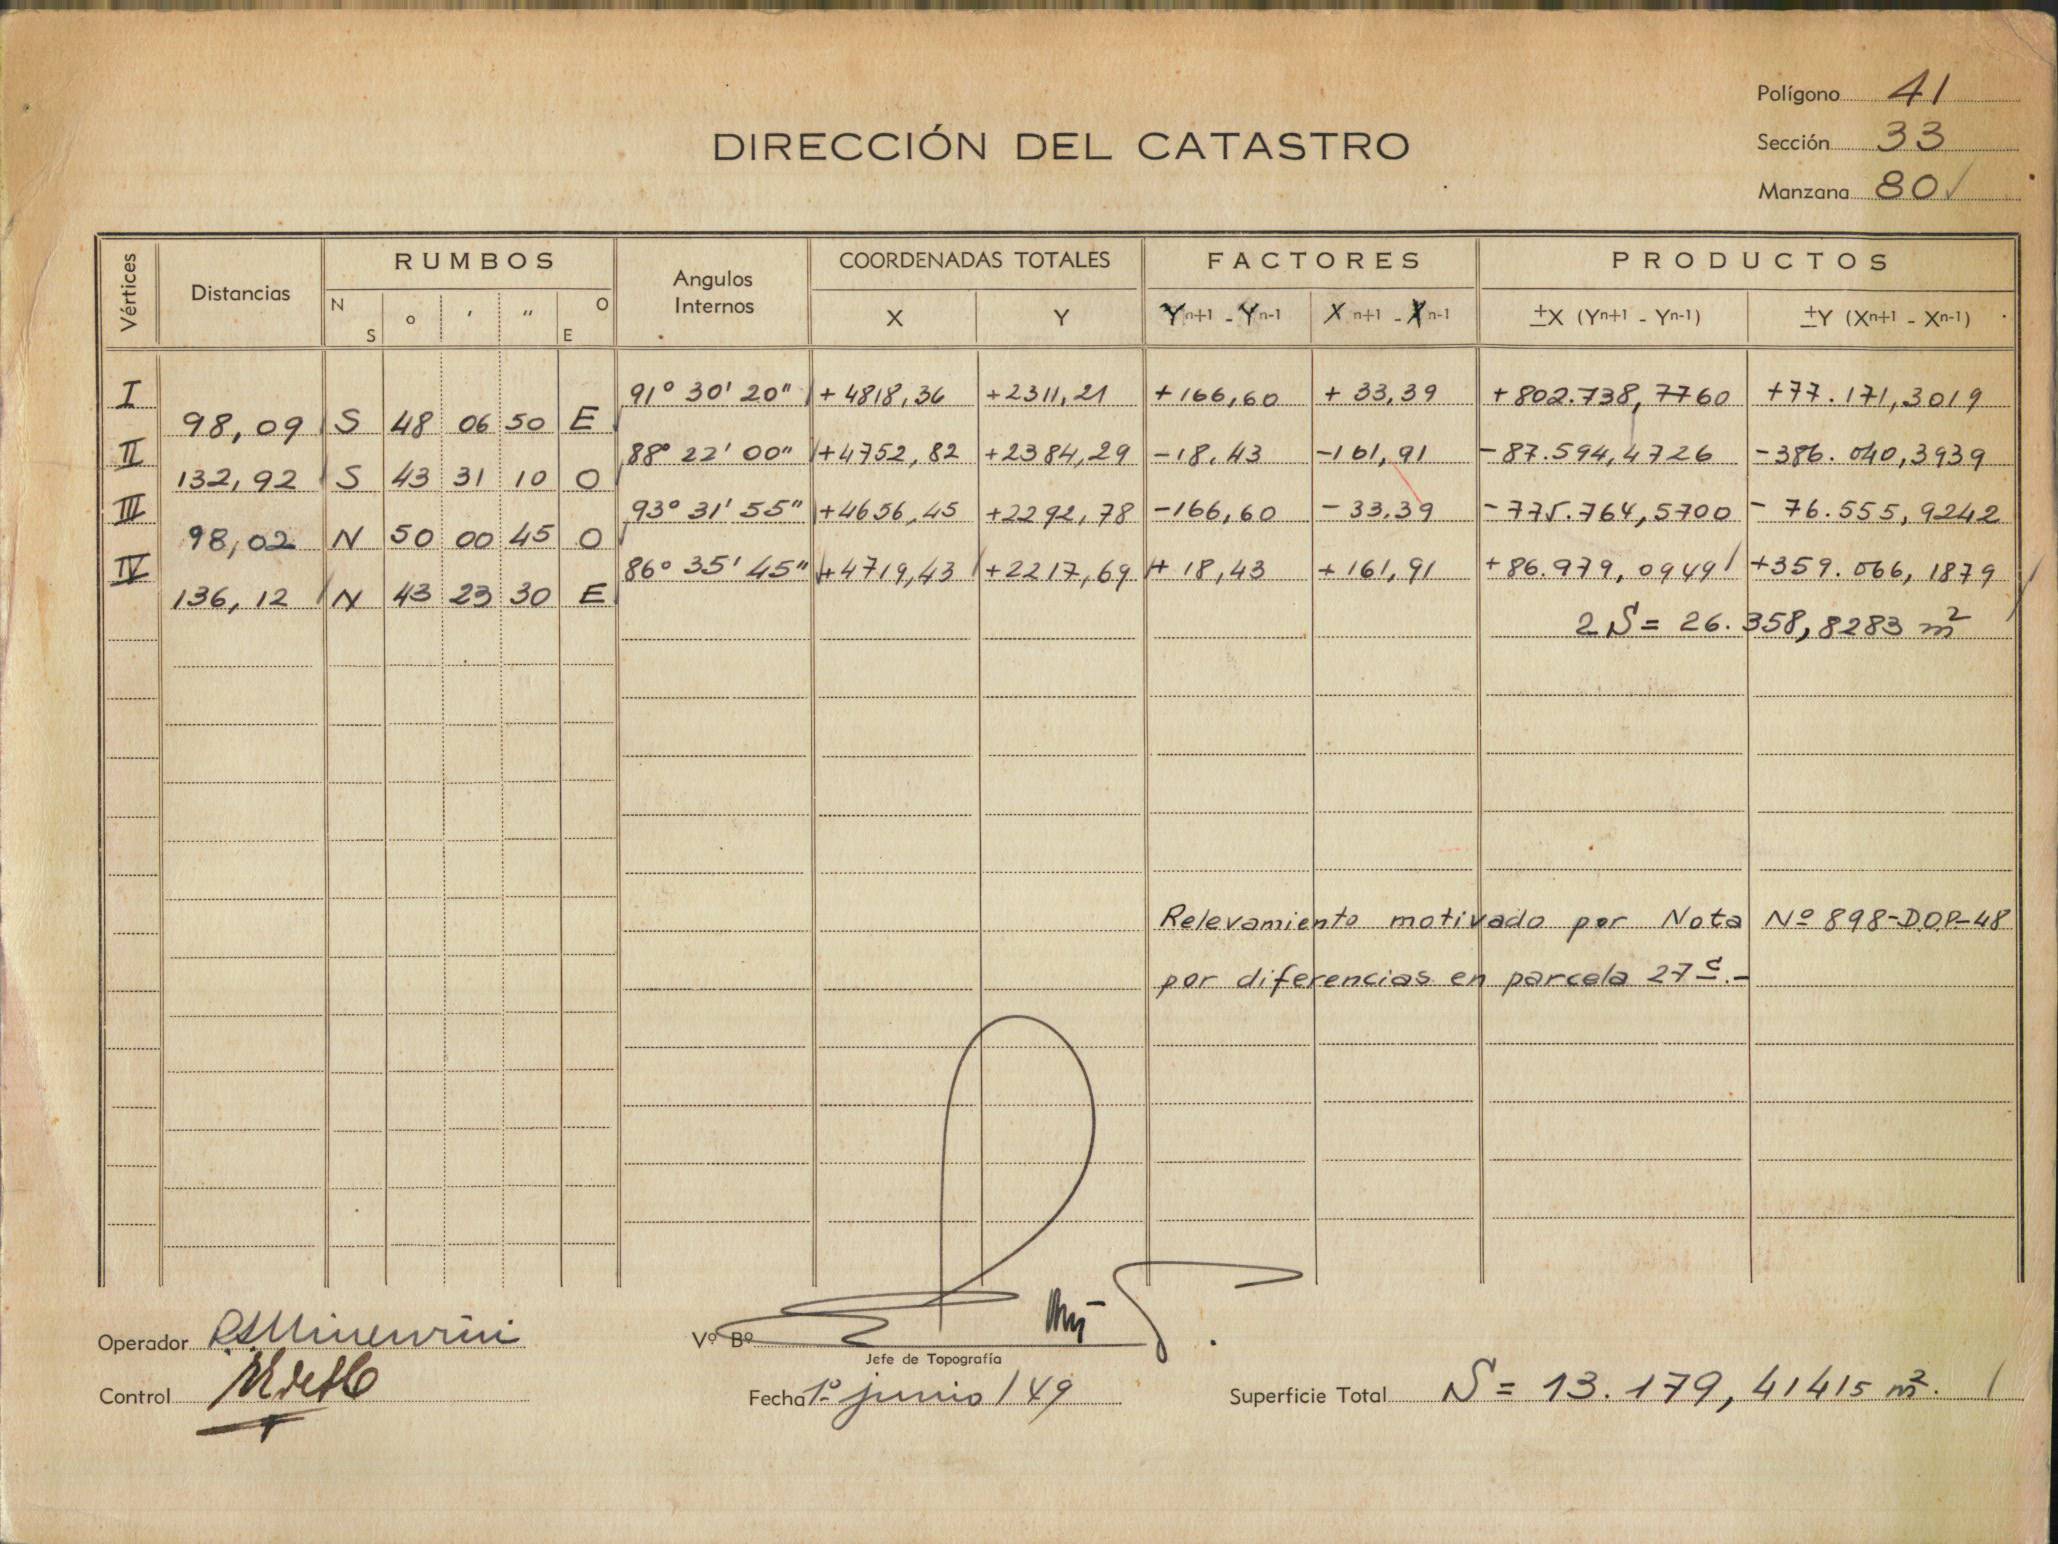 Polígono 41
DIRECCIÓN DEL CATASTRO
Sección 33
Manzana 80
Vértices
Distancias
RUMBOS
Angulos
Internos
COORDENADAS TOTALES
FACTORES
PRODUCTOS
N S ° ′ ″ O E
X Y Yn+1 - Yn-1 X n+1 - Xn-1 ±X (Yn+1 - Yn-1) ±Y (Xn+1 - Xn-1)
I 91° 30' 20" +4818,36 +2311,21 +166,60 +33,39 +802.738,7760 +77.171,3019
98,09 S 48 06 50 E
II 88° 22' 00" +4752,82 +2384,29 -18,43 -161,91 -87.594,4726 -386.040,3939
132,92 S 43 31 10 O
III 93° 31' 55" +4656,45 +2292,78 -166,60 -33,39 -775.764,5700 -76.555,9242
98,02 N 50 00 45 O
IV 86° 35' 45" +4719,43 +2217,69 +18,43 +161,91 +86.979,0949 +359.066,1879
136,12 N 43 23 30 E
2S = 26.358,8283 m²
Relevamiento motivado por Nota Nº 898-D.O.P-48
por diferencias en parcela 27c.-
Operador
Vº Bº
Jefe de Topografía
Control
Fecha 1º junio/49
Superficie Total S = 13.179,41415 m².